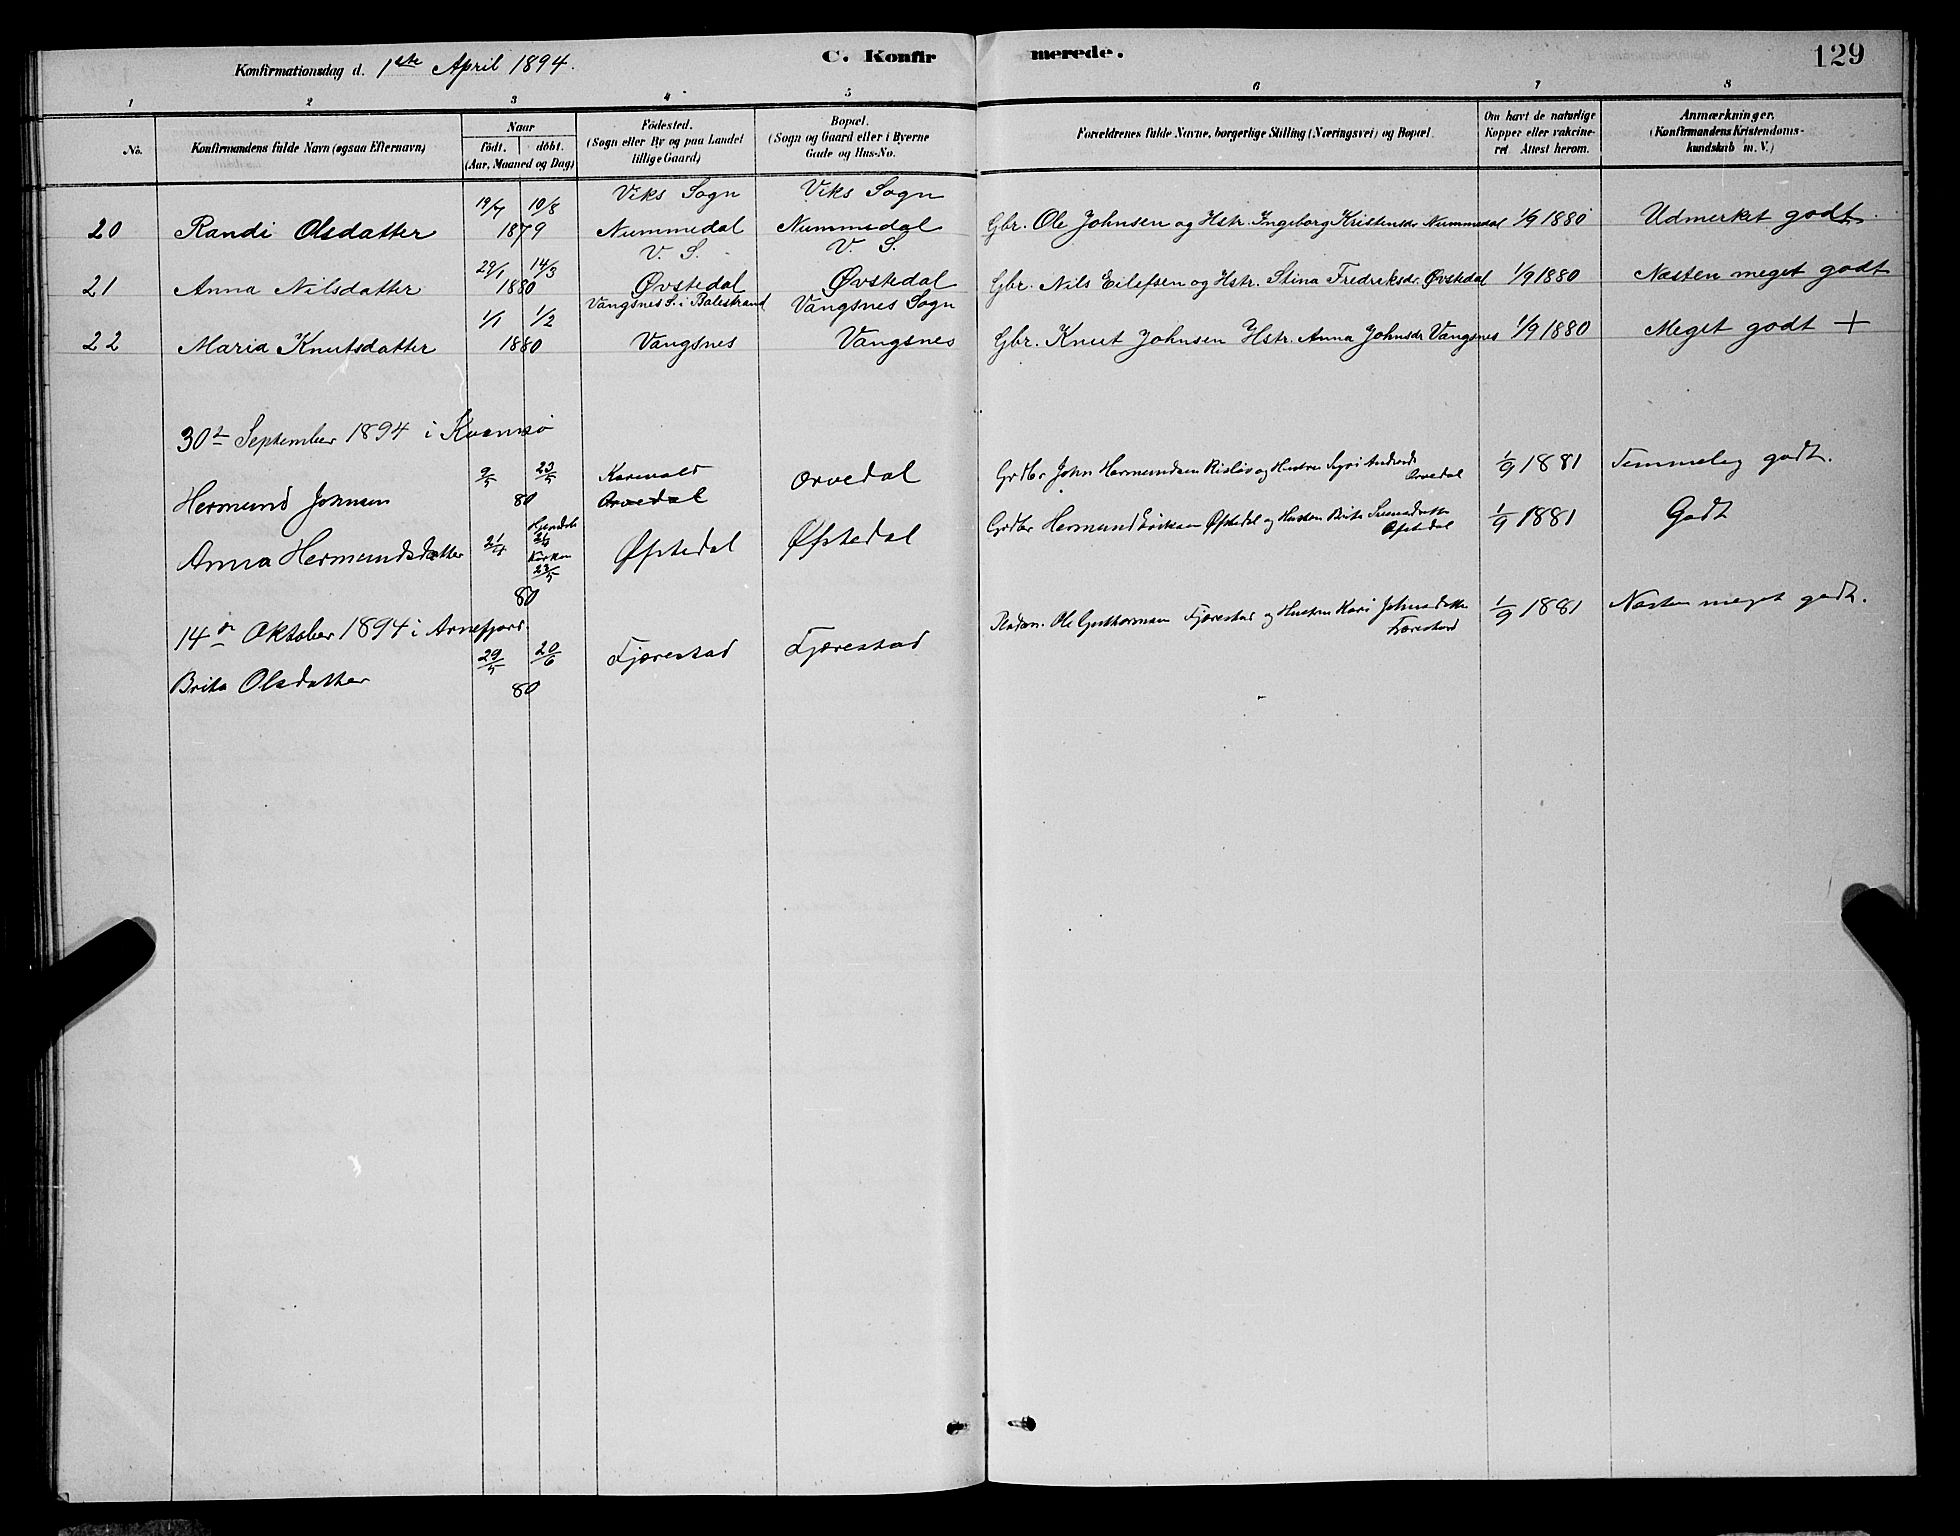 Konfirmationsdag d. 1ste April 1894.
C. Konfirmerede.
129
1 2 3 4 5 6 7 8
No.
Konfirmandens fulde Navn (ogsaa Efternavn)
Naar
födt. döbt.
(Aar, Maaned og Dag)
Födested.
(Sogn eller By og paa Landet
tillige Gaard)
Bopæl.
(Sogn og Gaard eller i Byerne
Gade og Hus-No.
Forældrenes fulde Navne, borgerlige Stilling (Næringsvei) og Bopæl.
Om havt de naturlige
Kopper eller vakcine-
ret Attest herom.
Anmærkninger.
(Konfirmandens Kristendoms-
kundskab m. V.)
19/7 10/8 Viks Sogn Viks Sogn
20 Randi Olsdatter 1879 Nummedal Nummedal Gbr. Ole Johnsen og Hstr. Ingeborg Kristensdr Nummedal 1/9 1880 Udmerket godt.
29/1 14/3 V. S. V. S.
21 Anna Nilsdatter 1880 Øvstedal Øvstedal Gbr. Nils Eilefsen og Hstr. Stina Fredriksdr. Øvstedal 1/9 1880 Næsten meget godt
1/1 1/2 Vangsnes S. i Balestrand Vangsnes Sogn
22 Maria Knutsdatter 1880 Vangsnes Vangsnes Gbr. Knut Johnsen Hstr. Anna Johnsdr Vangsnes 1/9 1880 Meget godt +
30te September 1894 i Kvamsö
9/5 23/5 Orvedal GrdBr John Hermundsen og Hustru 1/9 1881 Temmelig godt.
Hermund Johnsen 80 Orvedal Orvedal
Hjemdøbt
Anna Hermundsdatter 21/4 Kirken 23/5 Øfstedal Øfstedal GrdBr Hermund Eriksen Øfstedal og Hustru Brita Øfstedal 1/9 1881 Godt
80
14de Oktober 1894 i Arnefjord.
29/5 20/6 Fjærestad Fjærestad Ole Gutthormsen Fjærestad og Hustru Kari Johnsdatter 1/9 1881 Næsten meget godt.
Fjærestad
Brita Olsdatter 80